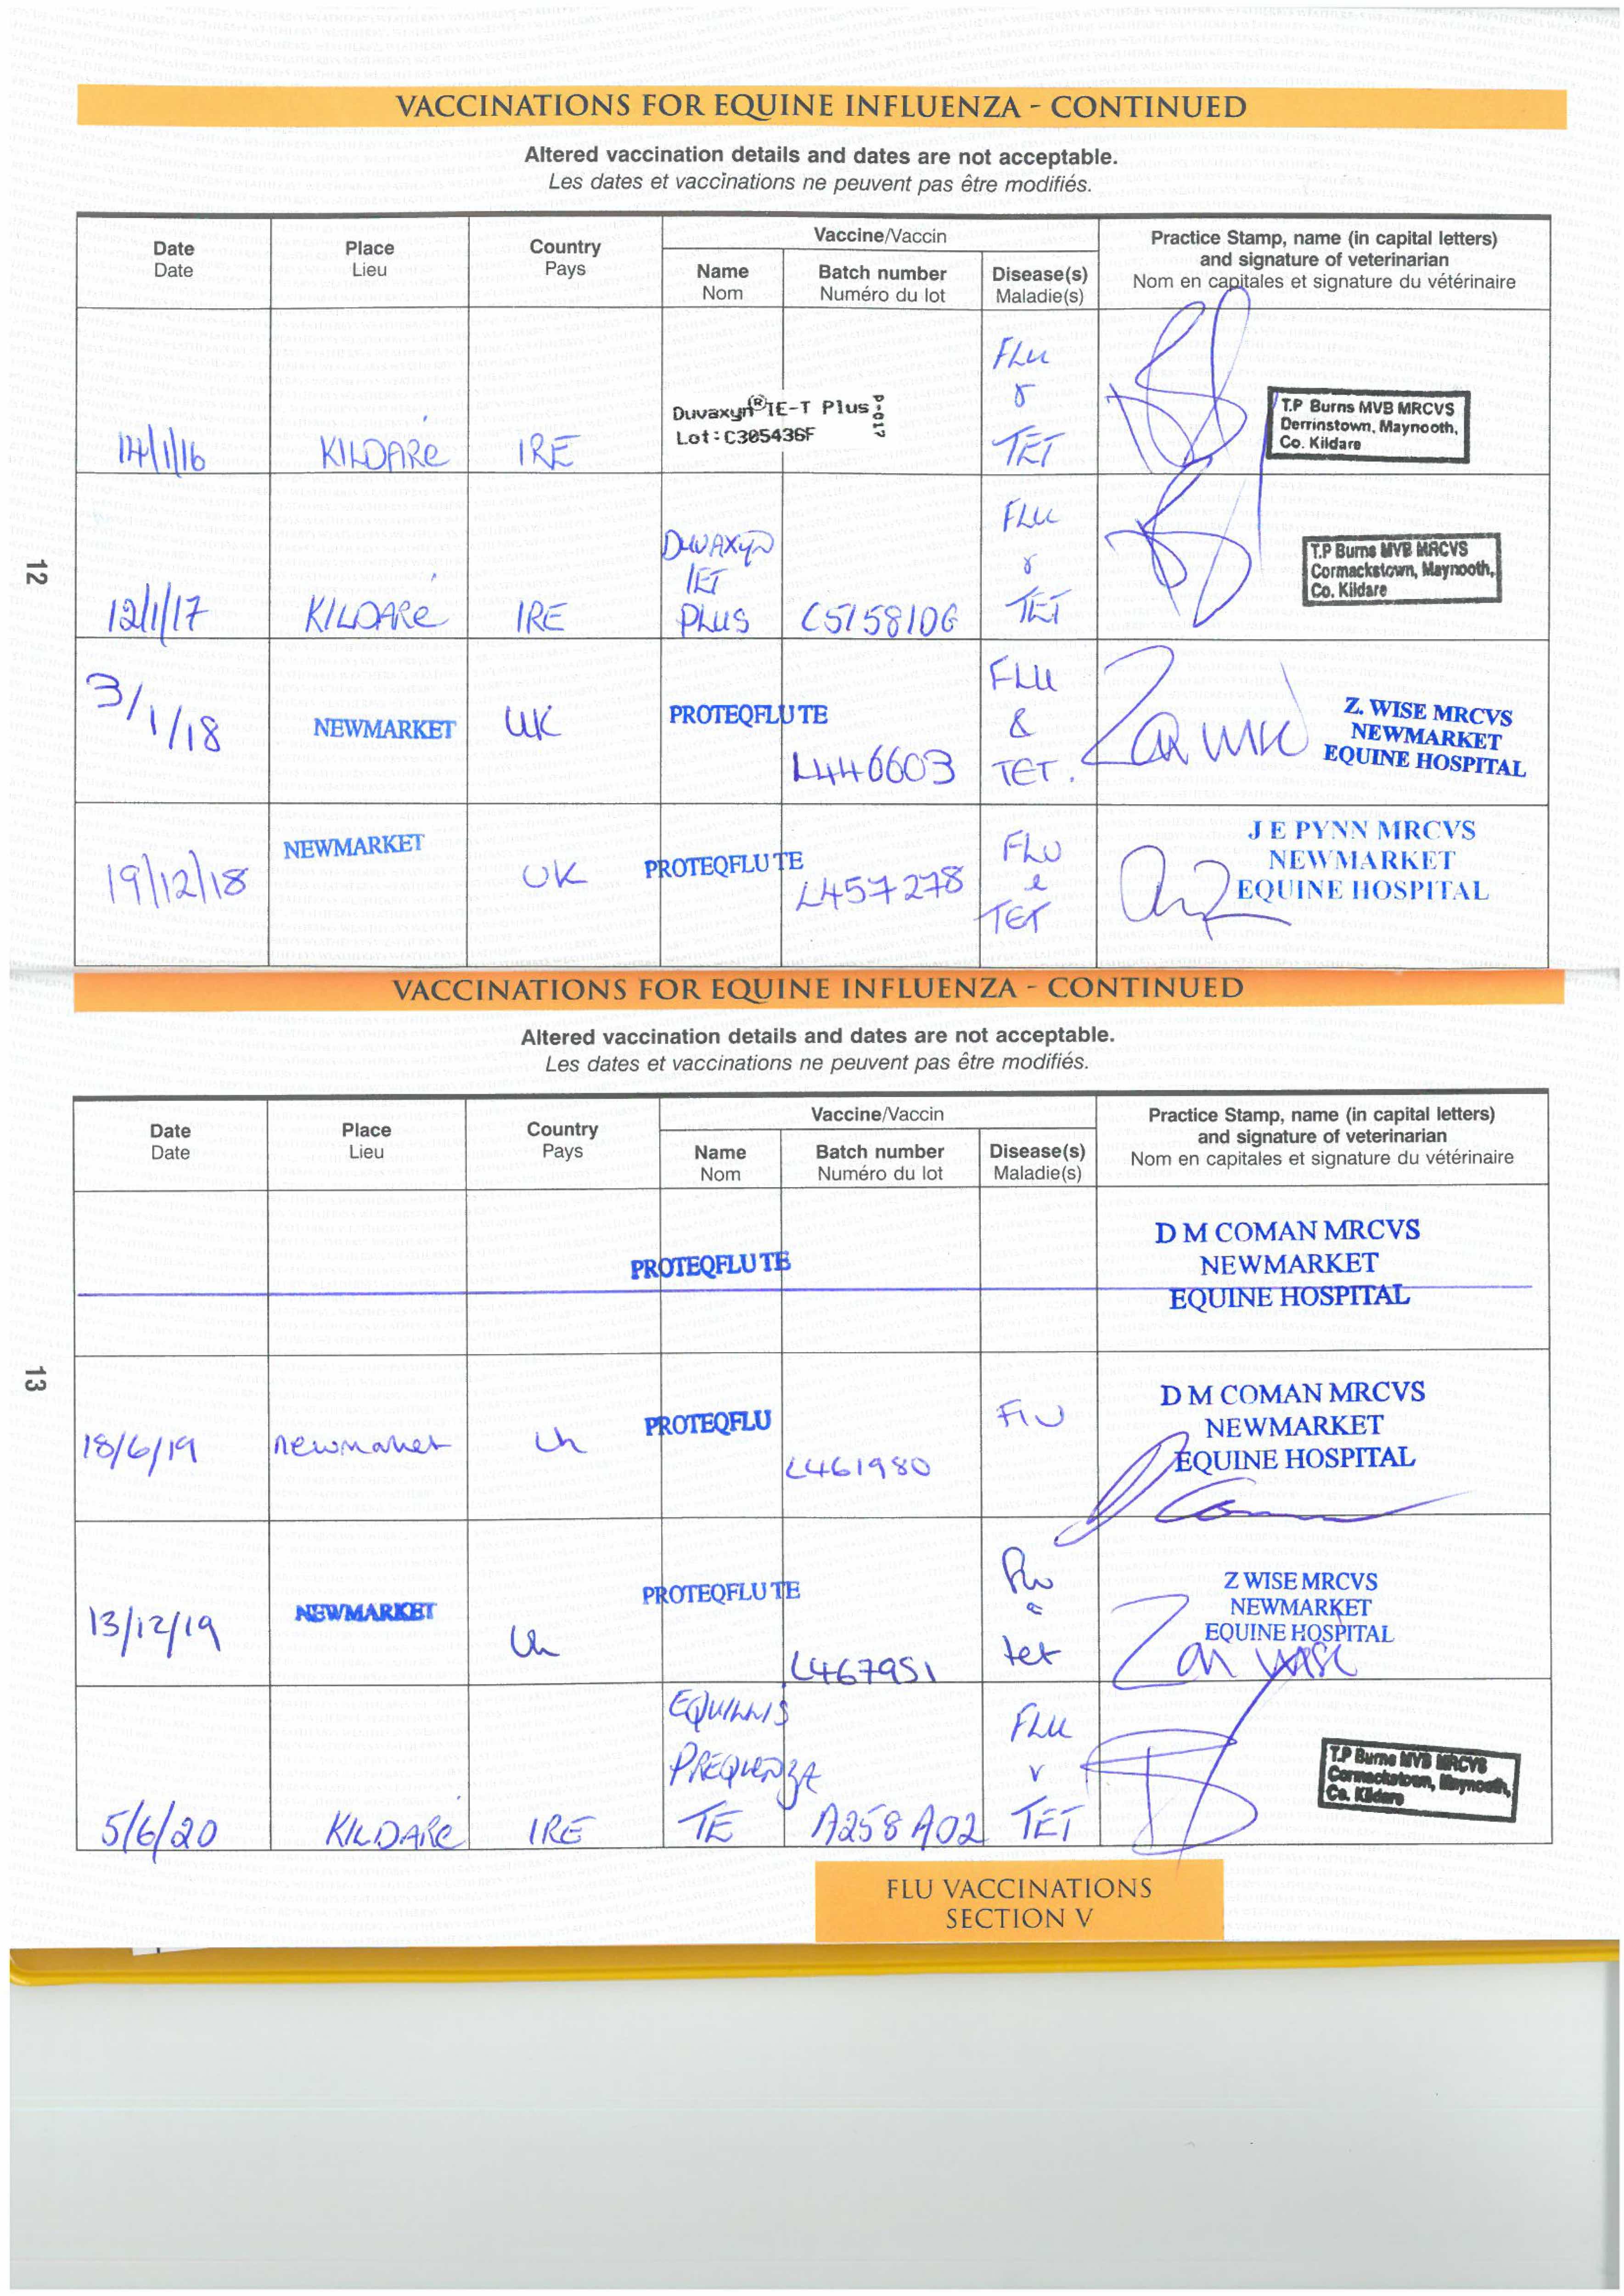 VACCINATIONS FOR EQUINE INFLUENZA - CONTINUED
Altered vaccination details and dates are not acceptable.
Les dates et vaccinations ne peuvent pas être modifiés.
Date
Date
Place
Lieu
Country
Pays
Vaccine/Vaccin
Name
Nom
Batch number
Numéro du lot
Disease(s)
Maladie(s)
Practice Stamp, name (in capital letters)
and signature of veterinarian
Nom en capitales et signature du vétérinaire
14/1/16
KILDARE
IRE
Duvaxyn® IE-T Plus
Lot: C305436F
P-017
FLU
&
TET
T.P Burns MVB MRCVS
Derrinstown, Maynooth,
Co. Kildare
12/1/17
KILDARE
IRE
DUVAXYN
IET
PLUS
C515810G
FLU
&
TET
T.P Burns MVB MRCVS
Cormackstown, Maynooth,
Co. Kildare
12
3/1/18
NEWMARKET
UK
PROTEQFLU TE
L446603
FLU
&
TET.
Z. WISE MRCVS
NEWMARKET
EQUINE HOSPITAL
19/12/18
NEWMARKET
UK
PROTEQFLU TE
L457278
FLU
&
TET
J E PYNN MRCVS
NEWMARKET
EQUINE HOSPITAL
VACCINATIONS FOR EQUINE INFLUENZA - CONTINUED
Altered vaccination details and dates are not acceptable.
Les dates et vaccinations ne peuvent pas être modifiés.
Date
Date
Place
Lieu
Country
Pays
Vaccine/Vaccin
Name
Nom
Batch number
Numéro du lot
Disease(s)
Maladie(s)
Practice Stamp, name (in capital letters)
and signature of veterinarian
Nom en capitales et signature du vétérinaire
PROTEQFLU TE
D M COMAN MRCVS
NEWMARKET
EQUINE HOSPITAL
13
18/6/19
newmarket
Uk
PROTEQFLU
L461980
Flu
D M COMAN MRCVS
NEWMARKET
EQUINE HOSPITAL
13/12/19
NEWMARKET
Uk
PROTEQFLU TE
L467951
Flu
&
tet
Z WISE MRCVS
NEWMARKET
EQUINE HOSPITAL
5/6/20
KILDARE
IRE
EQUILLIS
PREQUENZA
TE
A258A02
FLU
&
TET
T.P Burns MVB MRCVS
Cormackstown, Maynooth,
Co. Kildare
FLU VACCINATIONS
SECTION V